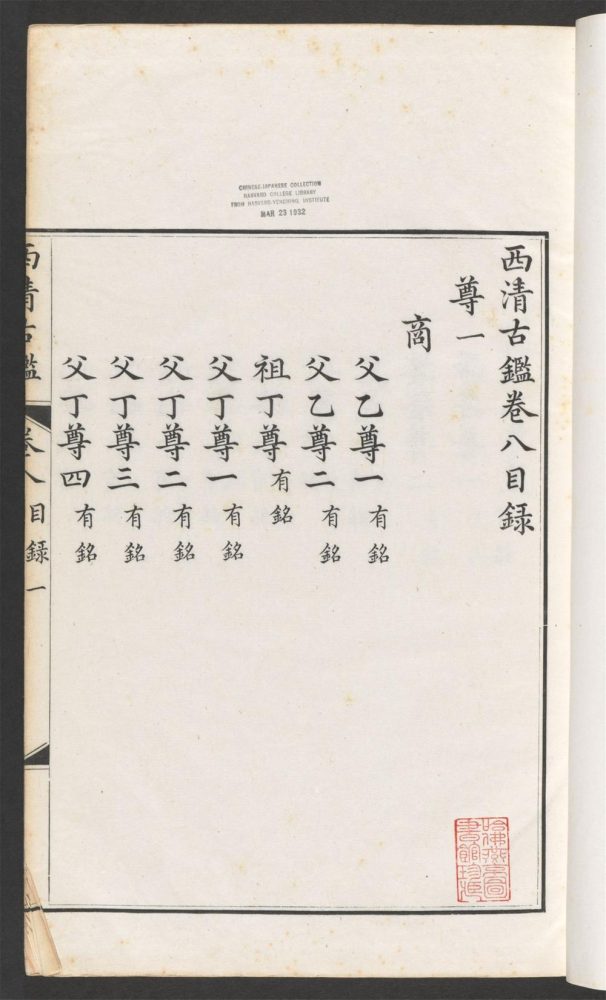 CHINESE-JAPANESE COLLECTION
HARVARD COLLEGE LIBRARY
FROM HARVARD-YENCHING INSTITUTE
MAR 23 1932
西清古鑑卷八目録
尊一
商
父乙尊一有銘
父乙尊二有銘
祖丁尊有銘
父丁尊一有銘
父丁尊二有銘
父丁尊三有銘
父丁尊四有銘
西清古鑑 卷八目録 一
哈佛燕京圖書館珍藏